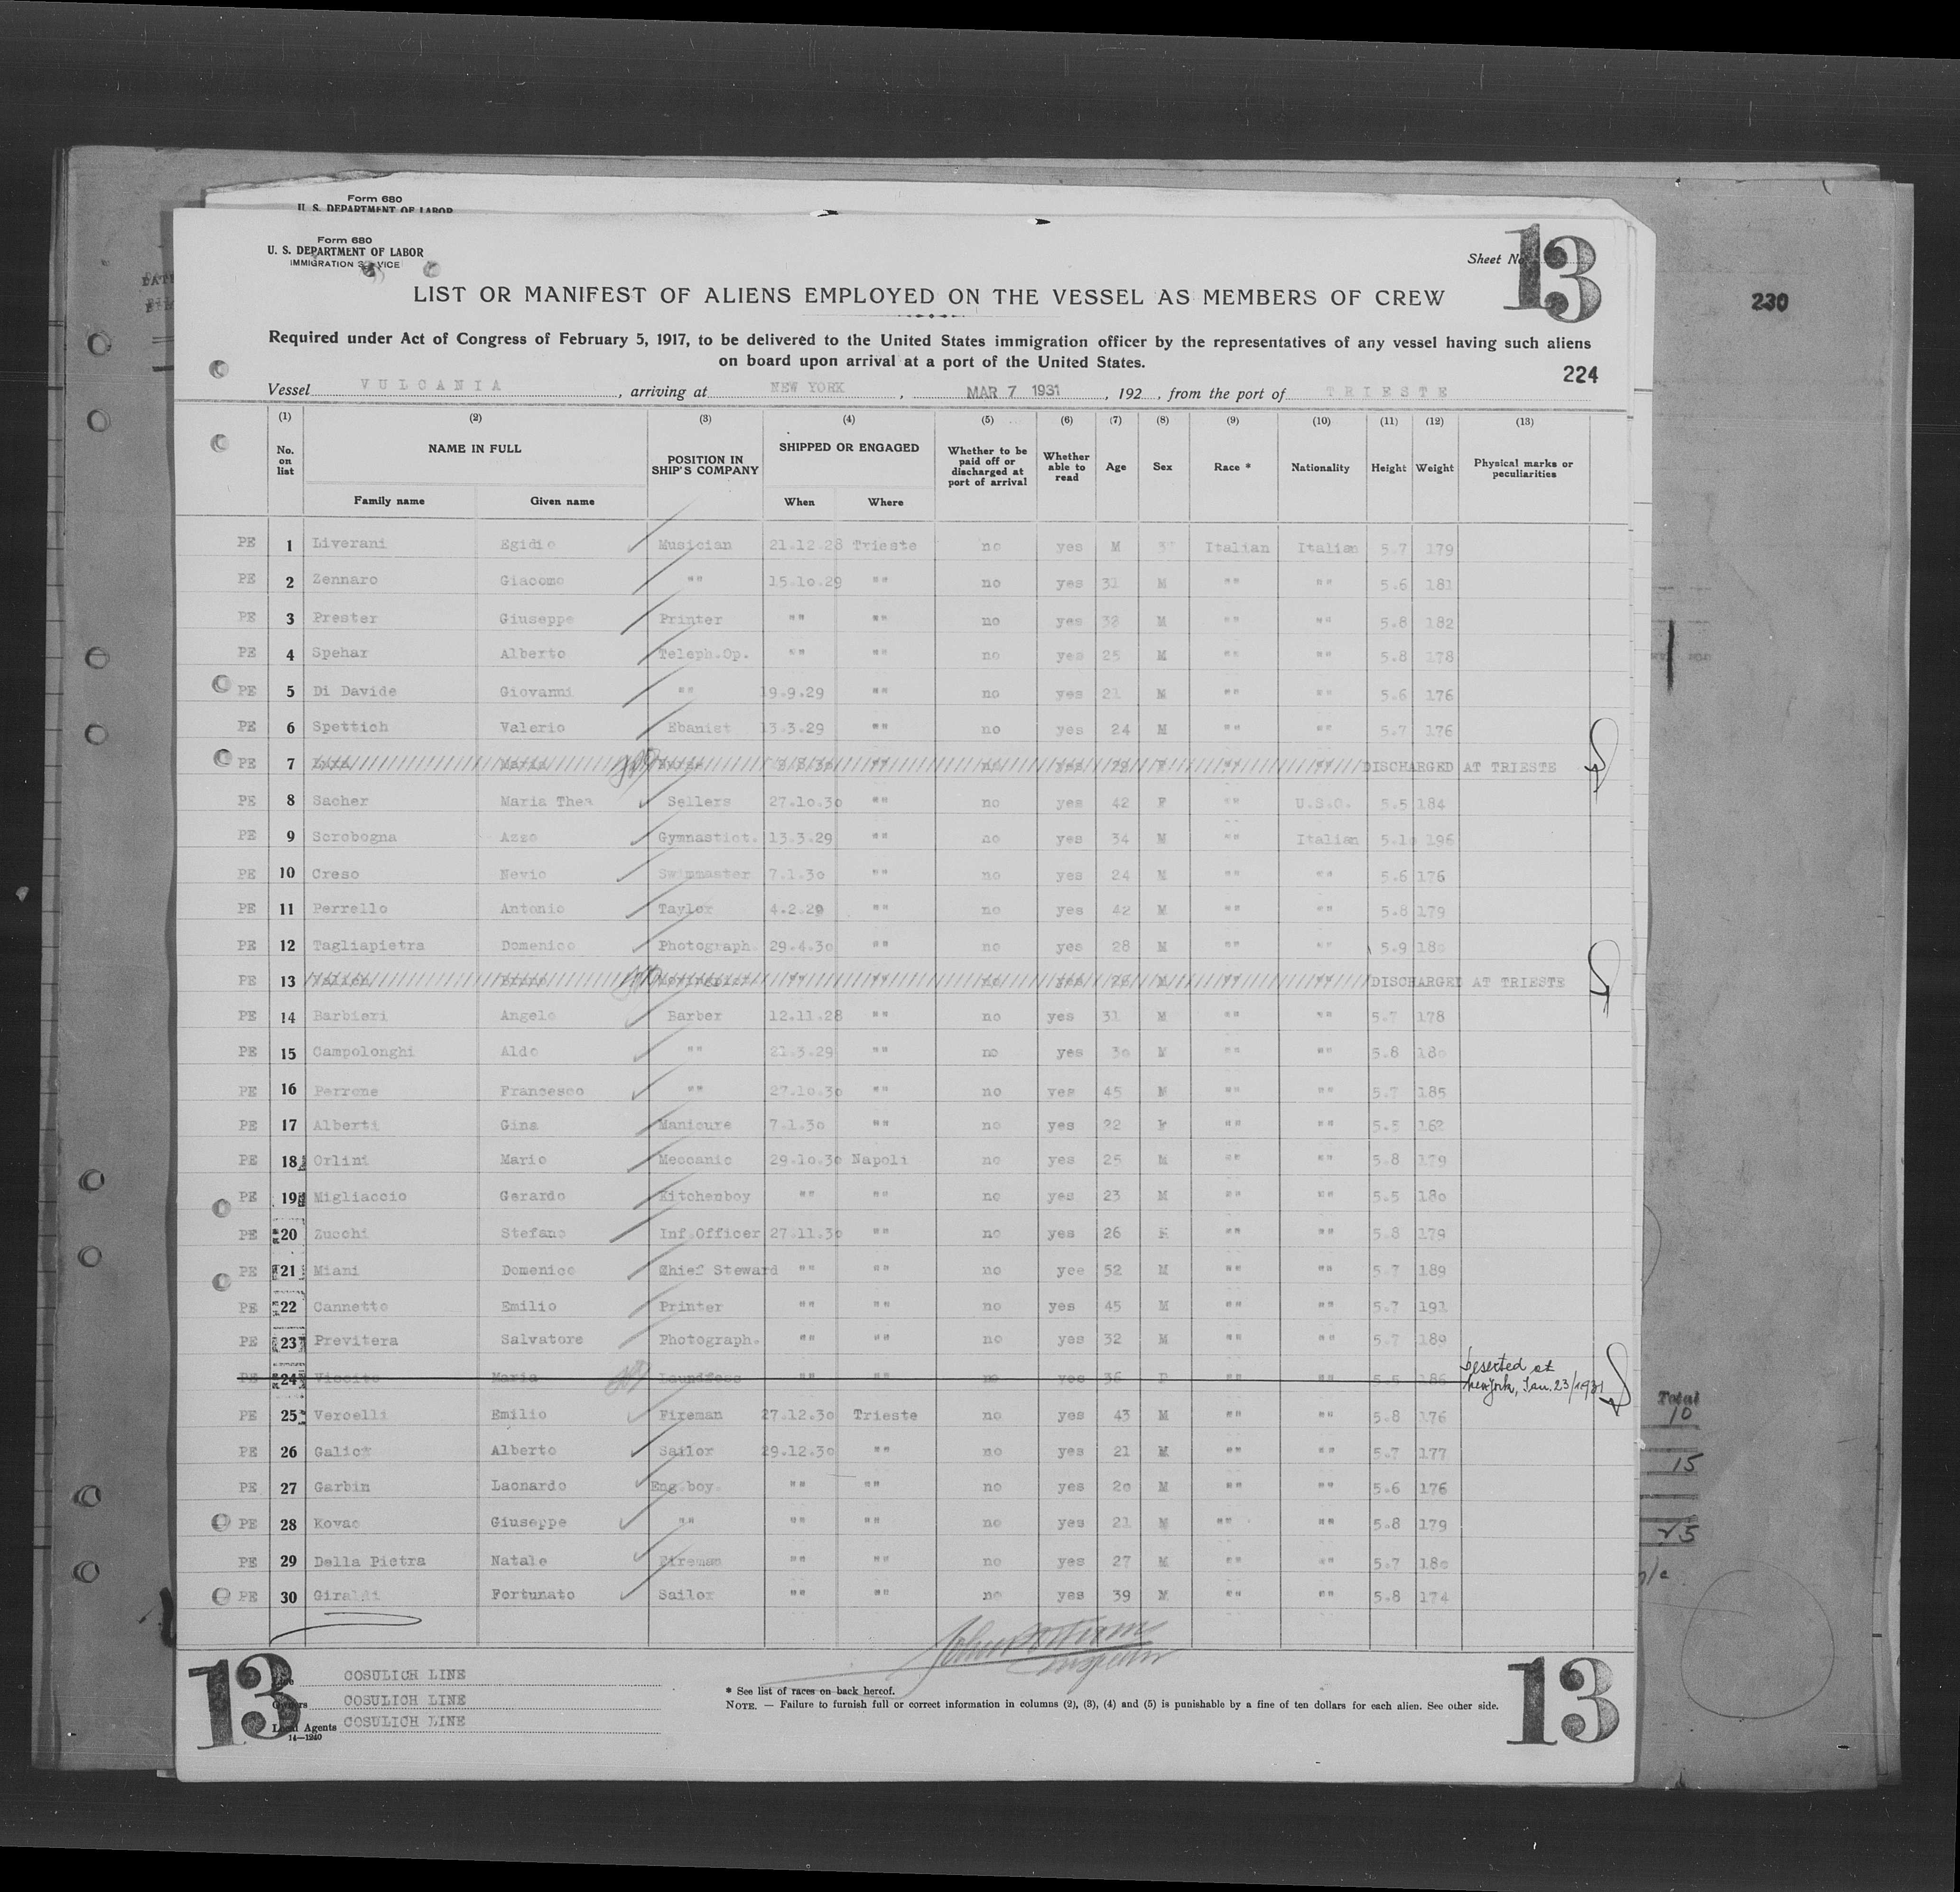 Form 680
U. S. DEPARTMENT OF LABOR
Form 680
U. S. DEPARTMENT OF LABOR
IMMIGRATION SERVICE
Sheet No. 13
230
LIST OR MANIFEST OF ALIENS EMPLOYED ON THE VESSEL AS MEMBERS OF CREW
Required under Act of Congress of February 5, 1917, to be delivered to the United States immigration officer by the representatives of any vessel having such aliens
on board upon arrival at a port of the United States.
224
Vessel VULCANIA, arriving at NEW YORK, MAR 7 1931, 192 , from the port of TRIESTE
(1) (2) (3) (4) (5) (6) (7) (8) (9) (10) (11) (12) (13)
No. on list NAME IN FULL POSITION IN SHIP'S COMPANY SHIPPED OR ENGAGED Whether to be paid off or discharged at port of arrival Whether able to read Age Sex Race * Nationality Height Weight Physical marks or peculiarities
Family name Given name When Where
PE 1 Liverani Egidio Musician 21.12.28 Trieste no yes M Italian Italian 5.7 179
PE 2 Zennaro Giacomo "" 15.10.29 "" no yes 31 M "" "" 5.6 181
PE 3 Prester Giuseppe Printer "" "" no yes 32 M "" "" 5.8 182
PE 4 Spehar Alberto Teleph.Op. "" "" no yes 25 M "" "" 5.8 178
PE 5 Di Davide Giovanni "" 19.9.29 "" no yes 21 M "" "" 5.6 176
PE 6 Spettich Valerio Ebanist 13.3.29 "" no yes 24 M "" "" 5.7 176
PE 7 Maria Nurse "" no yes 29 F "" "" DISCHARGED AT TRIESTE
PE 8 Sacher Maria Thea Sellers 27.10.30 "" no yes 42 F "" U.S.O. 5.5 184
PE 9 Scrobogna Azzo Gymnastict. 13.3.29 "" no yes 34 M "" Italian 5.10 196
PE 10 Creso Nevio Swimmaster 7.1.30 "" no yes 24 M "" "" 5.6 176
PE 11 Perrello Antonio Taylor 4.2.29 "" no yes 42 M "" "" 5.8 179
PE 12 Tagliapietra Domenico Photograph. 29.4.30 "" no yes 28 M "" "" 5.9 180
PE 13 Bruno "" "" no yes 26 M "" "" DISCHARGED AT TRIESTE
PE 14 Barbieri Angelo Barber 12.11.28 "" no yes 31 M "" "" 5.7 178
PE 15 Campolonghi Aldo "" 21.3.29 "" no yes 30 M "" "" 5.8 180
PE 16 Perrone Francesco "" 27.10.30 "" no yes 45 M "" "" 5.7 185
PE 17 Alberti Gina Manicure 7.1.30 "" no yes 22 F "" "" 5.5 162
PE 18 Orlini Mario Meccanic 29.10.30 Napoli no yes 25 M "" "" 5.8 179
PE 19 Migliaccio Gerardo Kitchenboy "" "" no yes 23 M "" "" 5.5 180
PE 20 Zucchi Stefano Inf.Officer 27.11.30 "" no yes 26 "" "" 5.8 179
PE 21 Miani Domenico Chief Steward "" "" no yee 52 M "" "" 5.7 189
PE 22 Cannetto Emilio Printer "" "" no yes 45 M "" "" 5.7 191
PE 23 Previtera Salvatore Photograph. "" "" no yes 32 M "" "" 5.7 189
PE 24 Maria Laundress "" "" no yes 36 F "" "" 5.5 186 Deserted at
New York, Jan. 23/1931
PE 25 Vercelli Emilio Fireman 27.12.30 Trieste no yes 43 M "" "" 5.8 176
PE 26 Galic Alberto Sailor 29.12.30 "" no yes 21 M "" "" 5.7 177
PE 27 Garbin Laonardo Eng.boy. "" "" no yes 20 M "" "" 5.6 176
PE 28 Kovac Giuseppe "" "" "" no yes 21 M "" "" 5.8 179
PE 29 Della Pietra Natale Fireman "" "" no yes 27 M "" "" 5.7 180
PE 30 Giraldi Fortunato Sailor "" "" no yes 39 M "" "" 5.8 174
Total
10
15
25
13
COSULICH LINE
Owners COSULICH LINE
Local Agents COSULICH LINE
14—1240
Inspector
* See list of races on back hereof.
NOTE. — Failure to furnish full or correct information in columns (2), (3), (4) and (5) is punishable by a fine of ten dollars for each alien. See other side.
13